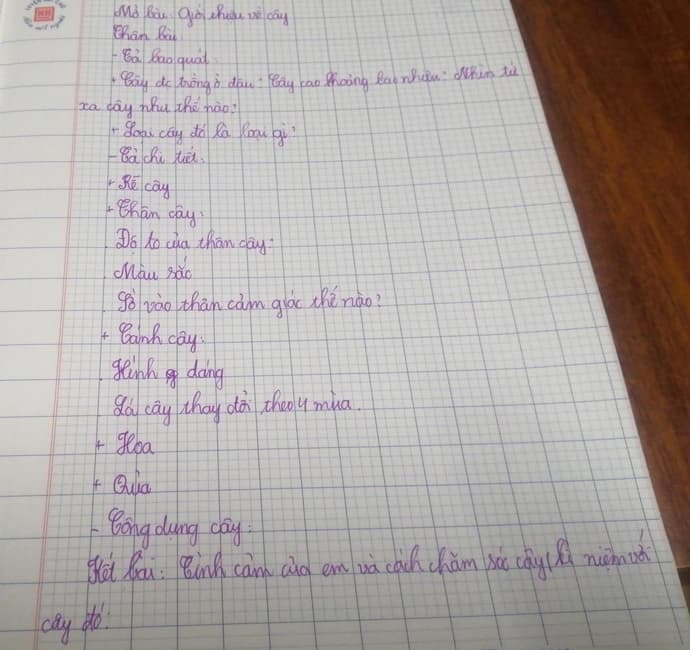 Mở bài: Giới thiệu về cây
Thân bài:
- Tả bao quát.
+ Cây đc trồng ở đâu? Cây cao khoảng bao nhiêu? Nhìn từ
xa cây như thế nào?
+ Loại cây đó là loại gì?
- Tả chi tiết.
+ Rễ cây
+ Thân cây:
Độ to của thân cây:
Màu sắc
Sờ vào thân cảm giác thế nào?
+ Cành cây:
Hình dáng
Lá cây thay đổi theo 4 mùa.
+ Hoa
+ Quả
- Công dụng cây:
Kết bài: Tình cảm của em và cách chăm sóc cây, kỉ niệm với
cây đó.